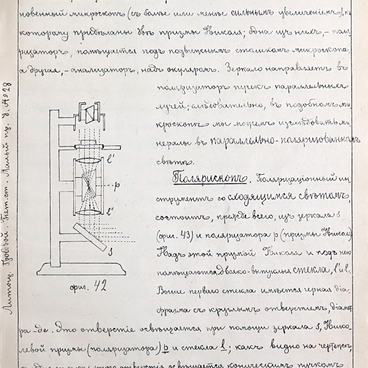 новенный микроскопъ (съ болѣе или менѣе сильнымъ увеличеніемъ), къ
которому придѣланы двѣ призмы Николя; одна изъ нихъ, - поля-
ризаторъ, помѣщается подъ подвижнымъ столикомъ микроскопа,
а другая, - анализаторъ, надъ окуляромъ. Зеркало направляетъ въ
поляризаторъ пучекъ параллельныхъ
лучей; слѣдовательно, въ подобномъ ми-
кроскопѣ мы можемъ изслѣдовать ми-
нералы въ параллельно-поляризованномъ
свѣтѣ.
Полярископъ. Поляризаціонный ин-
струментъ со сходящимся свѣтомъ
состоитъ, прежде всего, изъ зеркала s
(фиг. 43) и поляризатора p (призмы Николя)
Надъ этой призмой Николя и подъ нею
помѣщаются двояко-выпуклыя стекла, l' и l.
Выше перваго стекла имѣется черная діа-
фрагма съ круглымъ отверстіемъ, діаме-
тра de. Это отверстіе освѣщается при помощи зеркала s, Нико-
левой призмы (поляризатора) p и стекла l; какъ видно на чертежѣ,
отверстіе освѣщается коническимъ пучкомъ
l'
p
l
s
фиг. 42